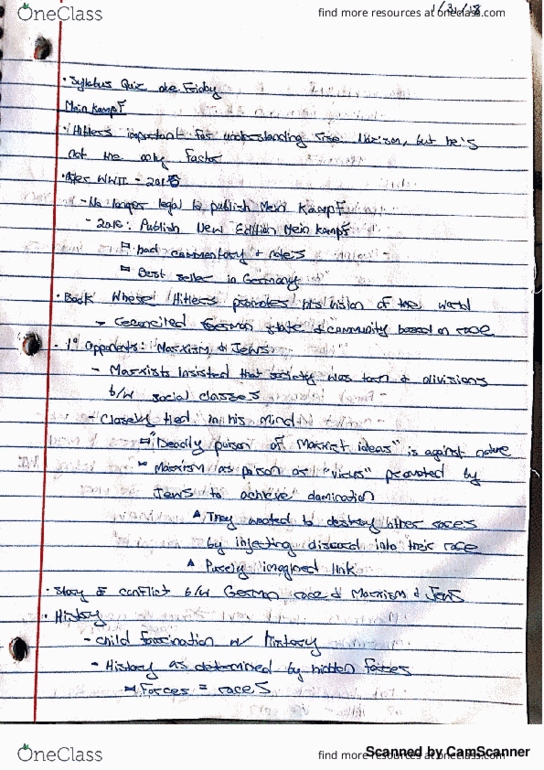 OneClass
find more resources at oneclass.com
1/31/18
• Syllabus Quiz due Friday
Mein Kampf
• Hitler is important for understanding rise Nazism, but he's
not the only factor
• After WWII - 2015
- No longer legal to publish Mein Kampf
- 2016: Publish New Edition Mein Kampf
had commentary + notes
Best seller in Germany
• Book where Hitler promotes his vision of the world
German state & community based on race
• 1° opponents: Marxism & Jews
- Marxists insisted that society was torn & divisions
b/w social classes
- Closely tied in his mind
"Deadly poison of Marxist ideas" is against nature
Marxism as poison or "virus" promoted by
Jews to achieve domination
▲ They wanted to destroy other races
by injecting discord into their race
▲ Purely imagined link
• Story of conflict b/w German race & Marxism & Jews
• History
- child fascination w/ history
- History as determined by hidden forces
Forces = races
OneClass
find more resources at oneclass.com
Scanned by CamScanner